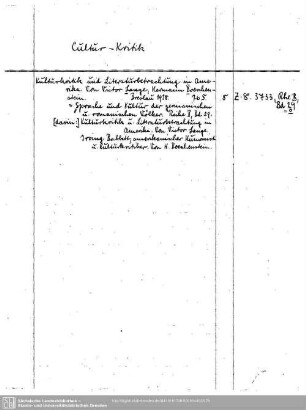 Cultur-Kritik
Kulturkritik und Literaturbetrachtung in Ame-
rika. Von Victor Lange, Hermann Boeschen-
stein. Breslau 1938.
= Sprache und Kultur der germanischen
u. romanischen Völker. Reihe B, Bd. 29.
[darin:] Kulturkritik u. Literaturbetrachtung in
Amerika. Von Victor Lange
Irving Babbitt, amerikanischer Humanist
u. Kulturkritiker. Von H. Boeschenstein.
8 Z. 8. 3733, Rhe B,
Bd 29
Sächsische Landesbibliothek -
Staats- und Universitätsbibliothek Dresden